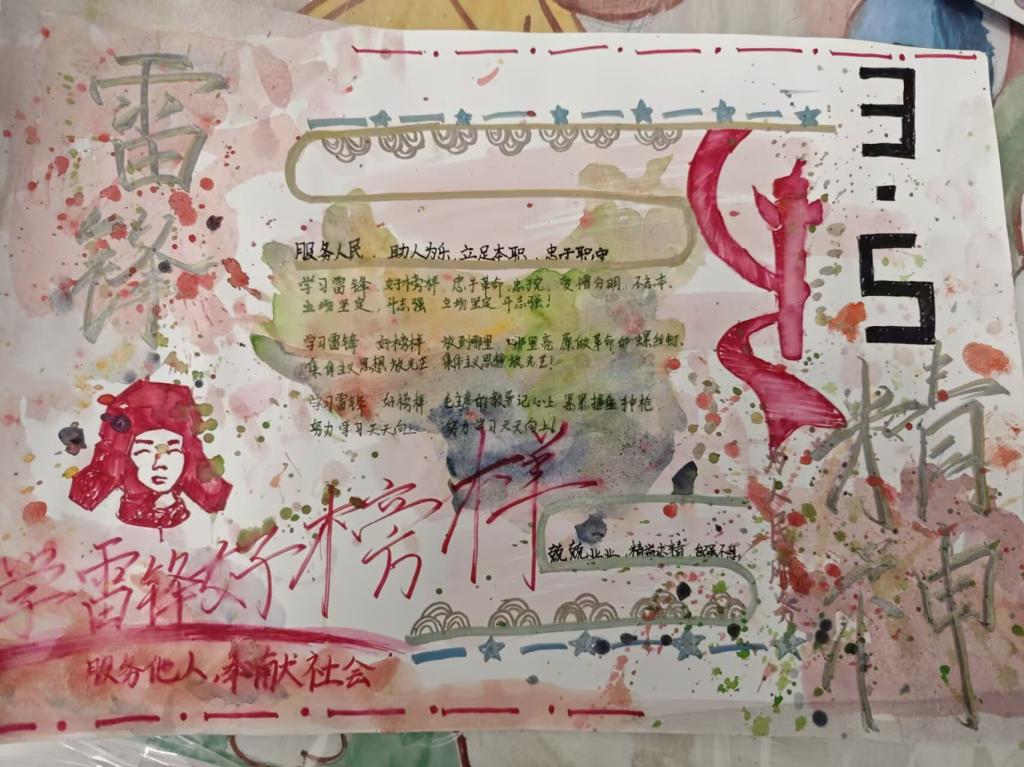 雷锋
3.5
精神
服务人民、助人为乐、立足本职、忠于职守
学习雷锋 好榜样 忠于革命 忠于党 爱憎分明 不忘本
立场坚定 斗志强 立场坚定 斗志强!
学习雷锋 好榜样 放到哪里 哪里亮 愿做革命的螺丝钉
集体主义思想放光芒 集体主义思想放光芒!
学习雷锋 好榜样 毛主席的教导记心上
努力学习天天向上 努力学习天天向上!
学雷锋好榜样
兢兢业业、精益求精、自强不息
服务他人,奉献社会